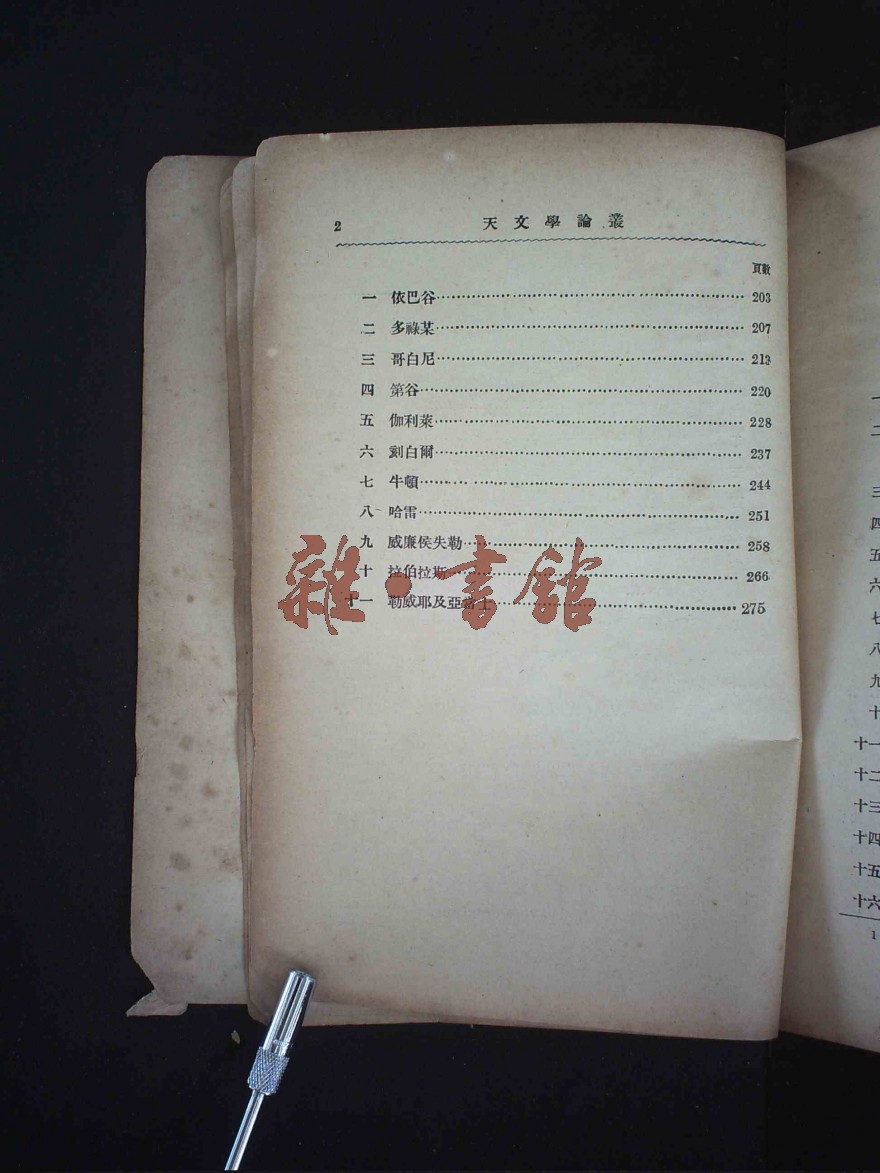 2 天文學論叢
頁數
一 依巴谷 203
二 多祿某 207
三 哥白尼 213
四 第谷 220
五 伽利萊 228
六 刻白爾 237
七 牛頓 244
八 哈雷 251
九 威廉侯失勒 258
十 拉伯拉斯 266
十一 勒威耶及亞 275
雜·書館
一
二
三
四
五
六
七
八
九
十
十一
十二
十三
十四
十五
十六
1